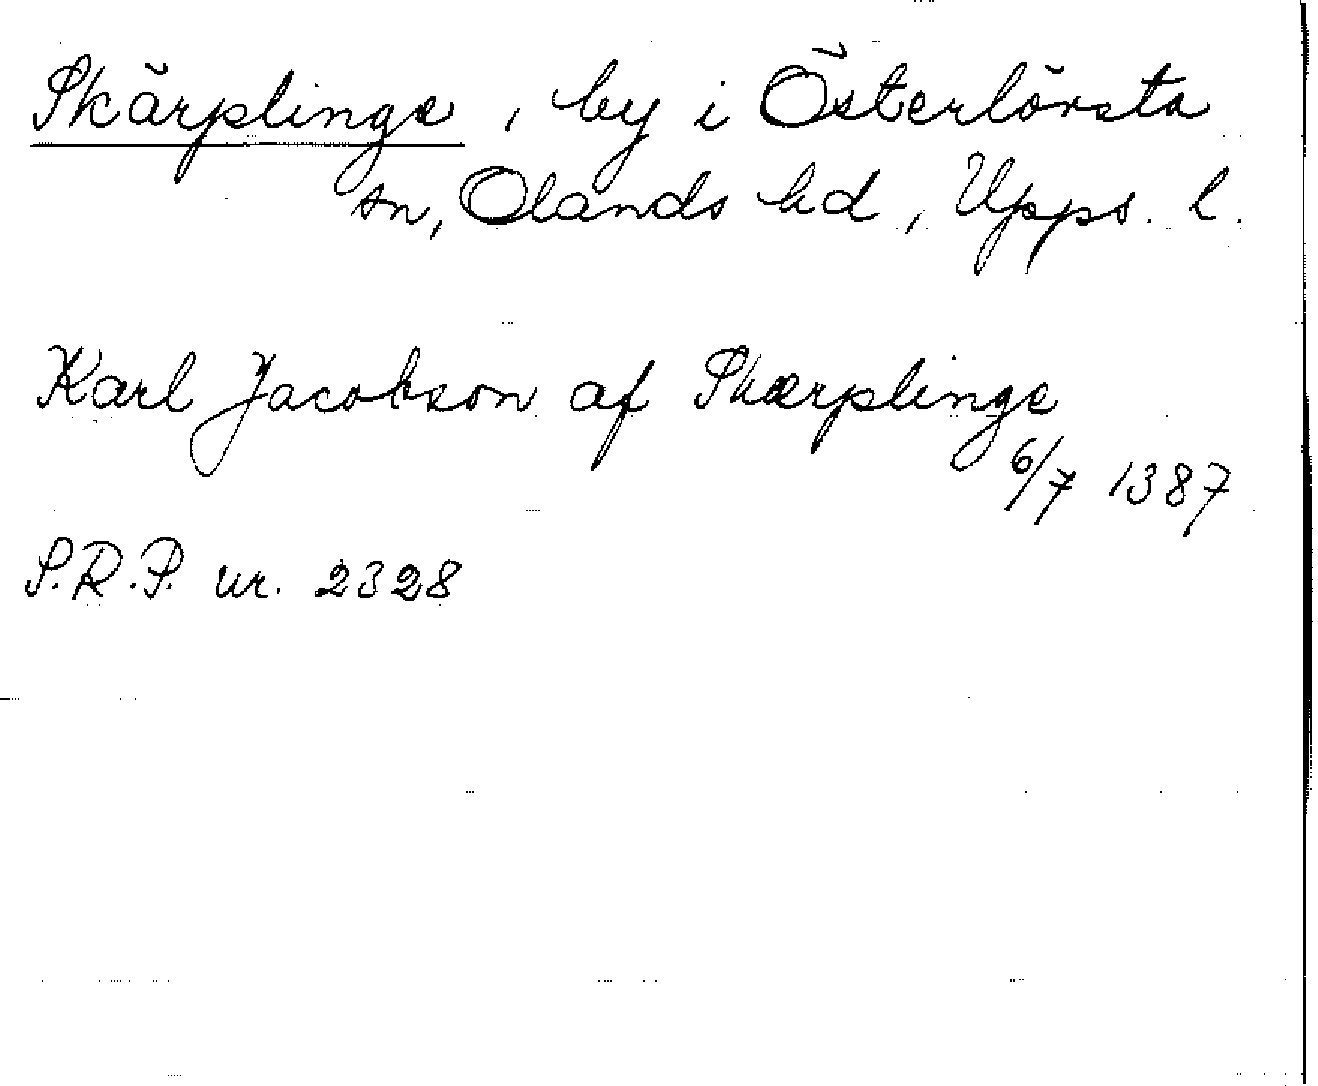 Skärplinge, by i Österlövsta
sn, Olands hd, Upps. l.
Karl Jacobson af Skærplinge
6/7 1387
S.R.P. nr. 2328